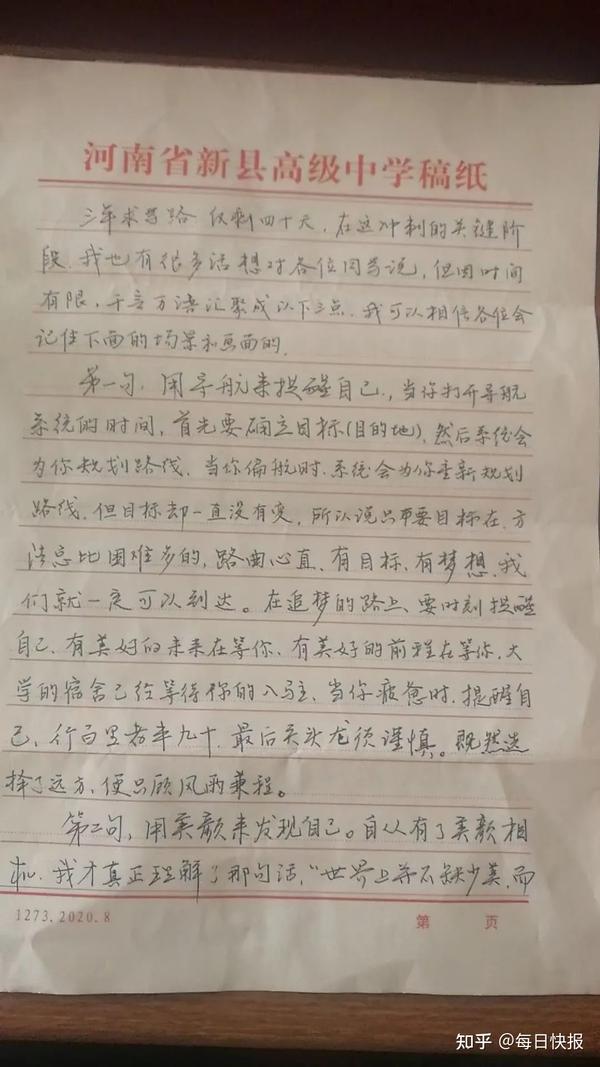 河南省新县高级中学稿纸
三年求学路 仅剩四十天，在这冲刺的关键阶
段，我也有很多话想对各位同学说，但因时间
有限，千言万语汇聚成以下三点，我可以相信各位会
记住下面的场景和画面的。
第一句，用导航来提醒自己，当你打开导航
系统的时间，首先要确立目标(目的地)，然后系统会
为你规划路线，当你偏航时，系统会为你重新规划
路线，但目标却一直没有变，所以说只要目标在，方
法总比困难多的，路曲心直，有目标，有梦想，我
们就一定可以到达。在追梦的路上，要时刻提醒
自己，有美好的未来在等你，有美好的前程在等你，大
学的宿舍已经等待你的入驻，当你疲惫时，提醒自
己，行百里者半九十，最后关头尤须谨慎。既然选
择了远方，便只顾风雨兼程。
第二句，用美颜来发现自己。自从有了美颜相
机，我才真正理解了那句话，“世界上并不缺少美，而
1273.2020.8
第 页
知乎 @每日快报